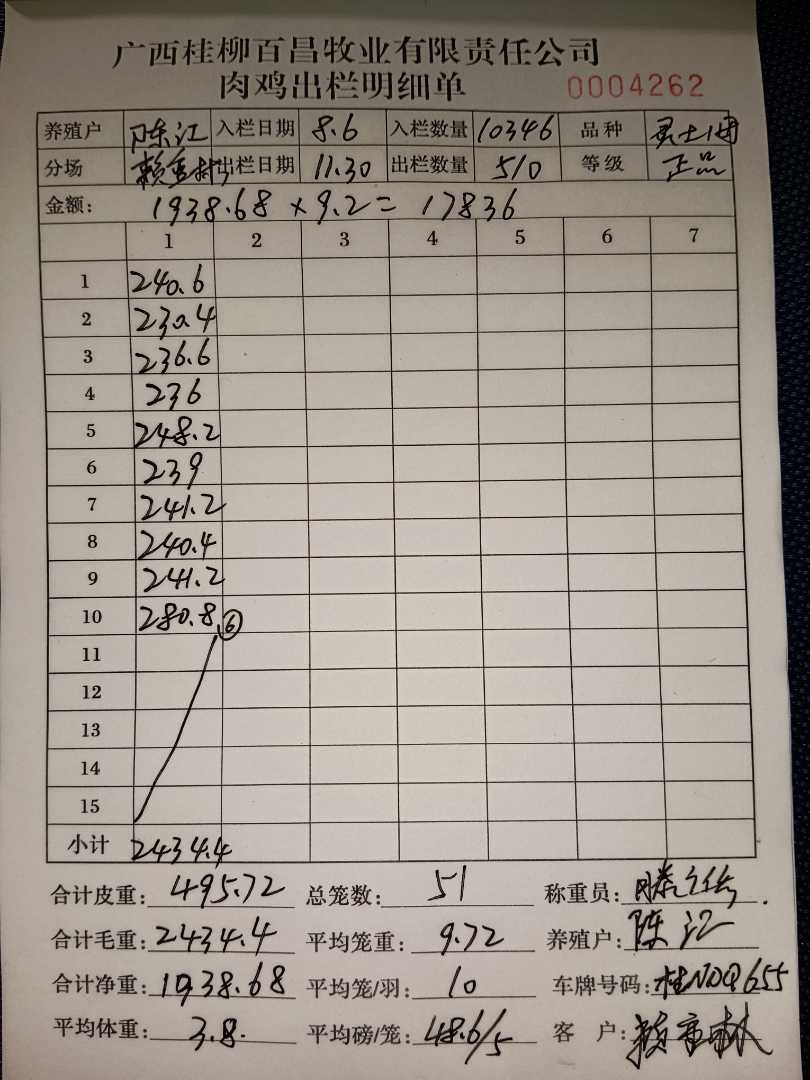 广西桂柳百昌牧业有限责任公司
肉鸡出栏明细单 0004262
养殖户 陈江 入栏日期 8.6 入栏数量 10346 品种
分场 出栏日期 11.30 出栏数量 510 等级 正品
金额: 1938.68 × 9.2 = 17836
1 2 3 4 5 6 7
1 240.6
2 230.4
3 236.6
4 236
5 248.2
6 239
7 241.2
8 240.4
9 241.2
10 280.8 ⑥
11
12
13
14
15
小计 2434.4
合计皮重: 495.72 总笼数: 51 称重员:
合计毛重: 2434.4 平均笼重: 9.72 养殖户: 陈江
合计净重: 1938.68 平均笼/羽: 10 车牌号码: 桂NDQ655
平均体重: 3.8. 平均磅/笼: 48.6/5 客 户: